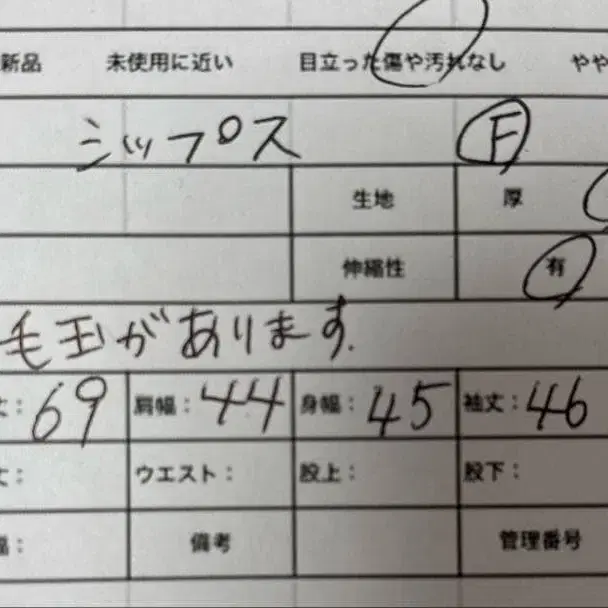 新品 未使用に近い 目立った傷や汚れなし やや
シップス F
生地 厚
伸縮性 有
毛玉があります.
丈:69 肩幅:44 身幅:45 袖丈:46
丈: ウエスト: 股上: 股下:
幅: 備考 管理番号